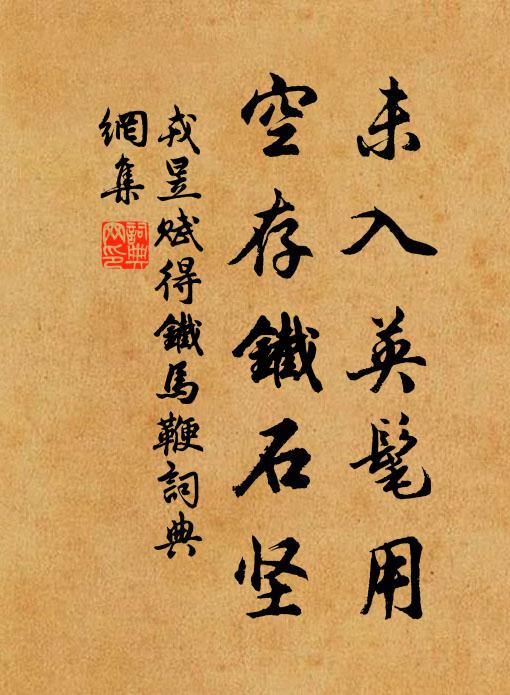 未入英髦用
空存鐵石坚
戎昱赋得鐵馬鞭詞典
網集
詞典網印